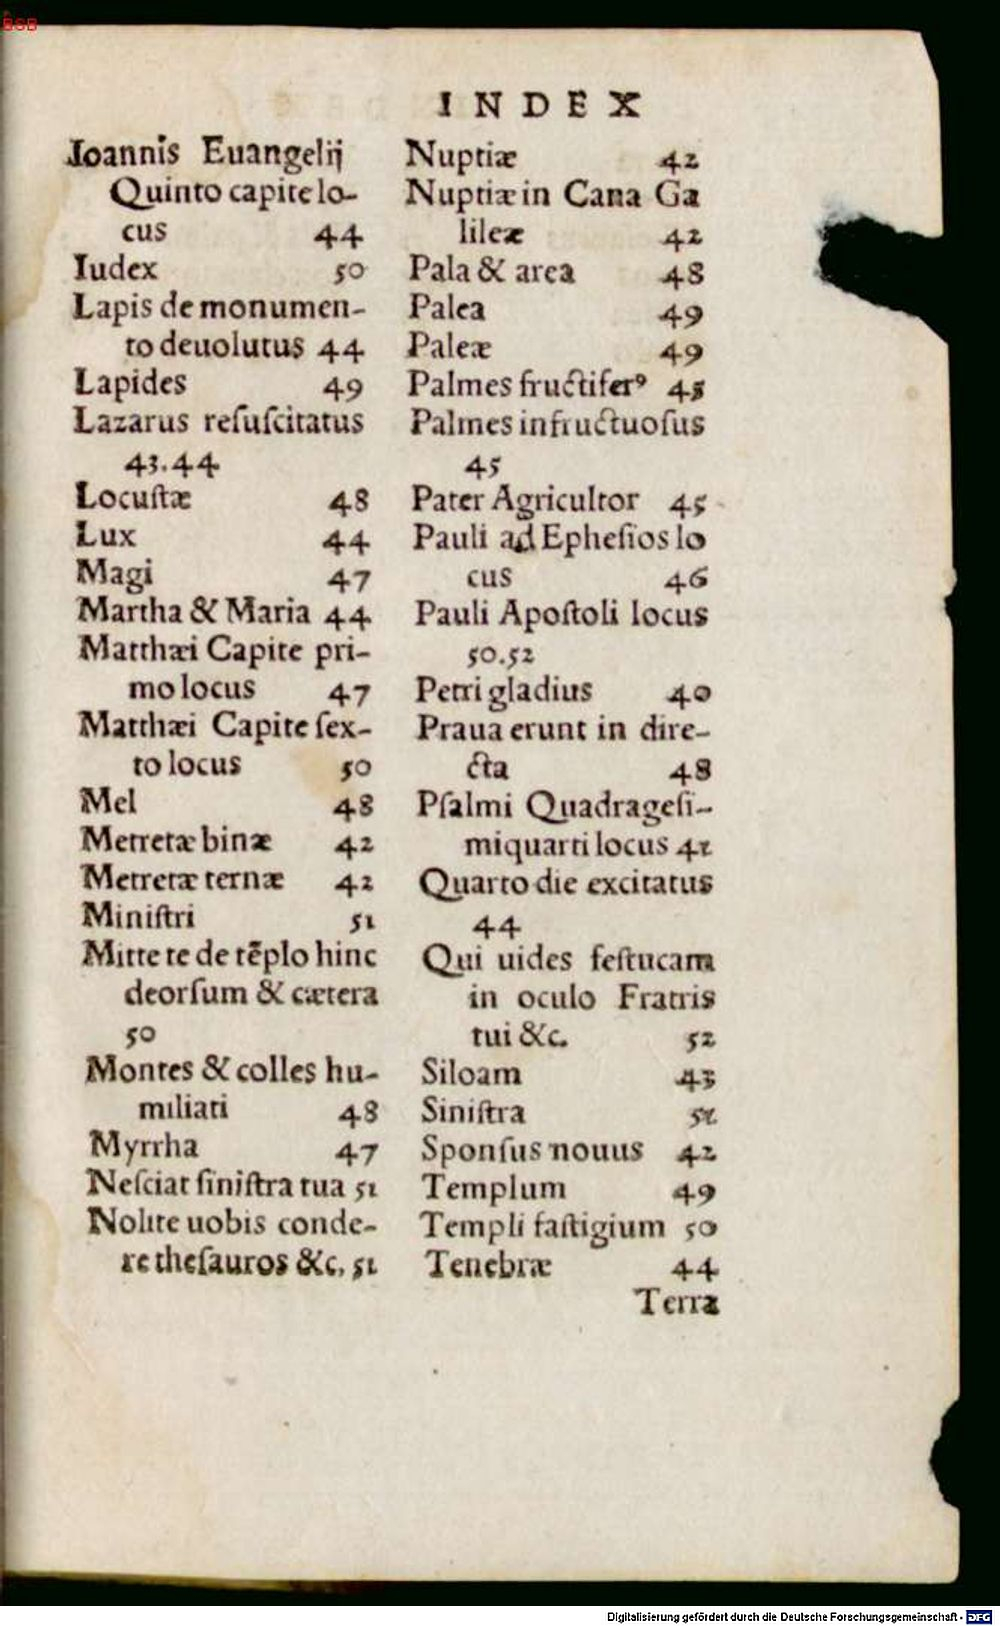 BSB
INDEX
Ioannis Euangelij
Quinto capite lo-
cus 44
Iudex 50
Lapis de monumen-
to deuolutus 44
Lapides 49
Lazarus reſuſcitatus
43.44
Locuſtæ 48
Lux 44
Magi 47
Martha & Maria 44
Matthæi Capite pri-
mo locus 47
Matthæi Capite ſex-
to locus 50
Mel 48
Metretæ binæ 42
Metretæ ternæ 42
Miniſtri 51
Mitte te de tẽplo hinc
deorſum & cætera
50
Montes & colles hu-
miliati 48
Myrrha 47
Neſciat ſiniſtra tua 51
Nolite uobis conde-
re theſauros &c. 51
Nuptiæ 42
Nuptiæ in Cana Ga
lileæ 42
Pala & area 48
Palea 49
Paleæ 49
Palmes fructiferꝰ 45
Palmes infructuoſus
45
Pater Agricultor 45
Pauli ad Epheſios lo
cus 46
Pauli Apoſtoli locus
50.52
Petri gladius 40
Praua erunt in dire-
cta 48
Pſalmi Quadrageſi-
miquarti locus 41
Quarto die excitatus
44
Qui uides feſtucam
in oculo Fratris
tui &c. 52
Siloam 43
Siniſtra 51
Sponſus nouus 42
Templum 49
Templi faſtigium 50
Tenebræ 44
Terra
Digitalisierung gefördert durch die Deutsche Forschungsgemeinschaft - DFG